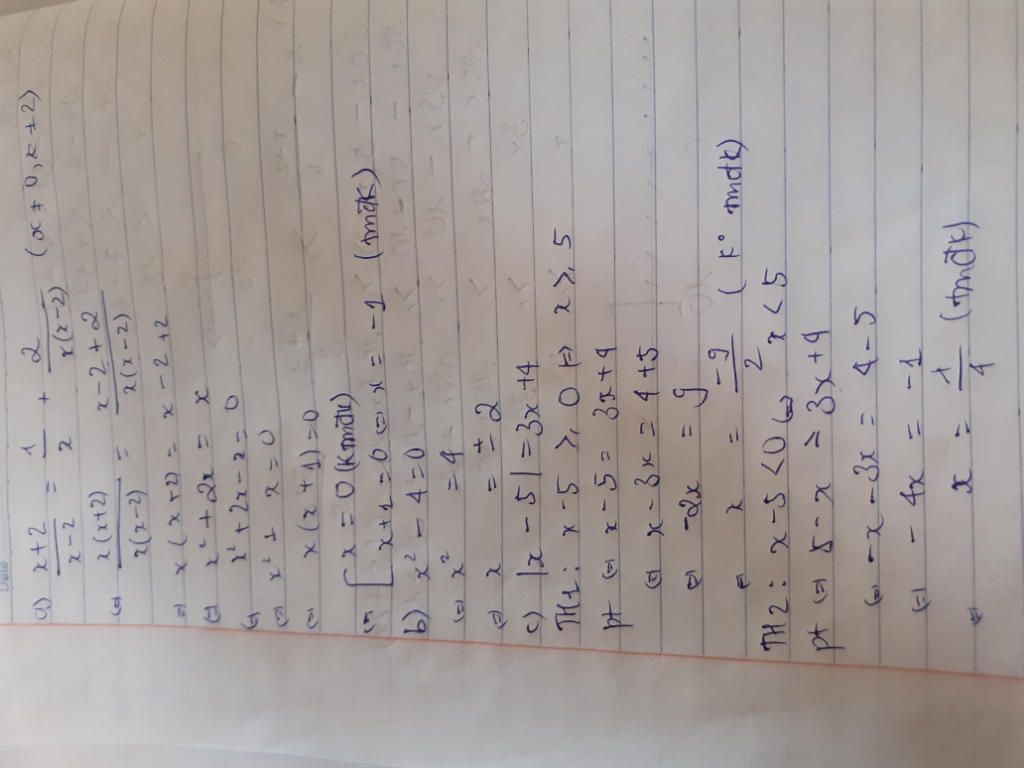 a) x+2/x-2 = 1/x + 2/x(x-2) (x ≠ 0, x ≠ 2)
⇔ x(x+2)/x(x-2) = x-2+2/x(x-2)
⇒ x(x+2) = x-2+2
⇔ x² + 2x = x
⇔ x² + 2x - x = 0
⇔ x² + x = 0
⇔ x(x+1) = 0
⇔ [ x = 0 (ktmđk)
x+1 = 0 ⇔ x = -1 (tmđk)
b) x² - 4 = 0
⇔ x² = 4
⇔ x = ±2
c) |x - 5| = 3x+4
TH1: x-5 ≥ 0 ⇔ x ≥ 5
pt ⇔ x-5 = 3x+4
⇔ x-3x = 4+5
⇔ -2x = 9
⇔ x = -9/2 (ko tmđk)
TH2: x-5 < 0 ⇔ x < 5
pt ⇔ 5-x = 3x+4
⇔ -x-3x = 4-5
⇔ -4x = -1
⇔ x = 1/4 (tmđk)